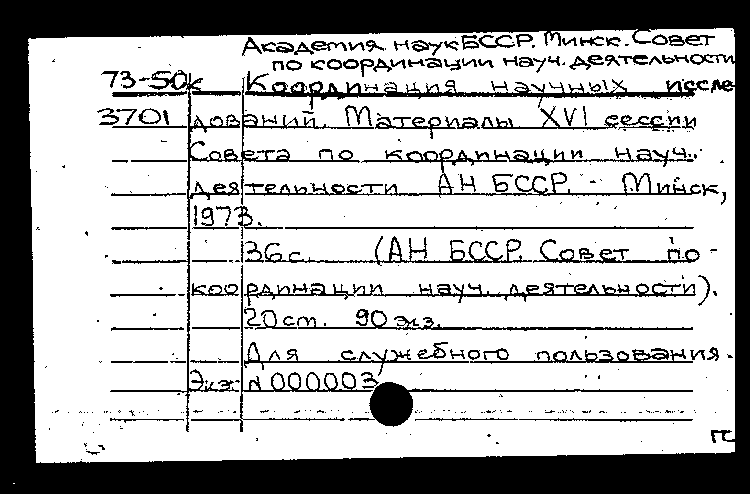 Академия наук БССР. Минск. Совет
по координации науч. деятельности
73-50к Координация научных иссле
3701 дований. Материалы XVI сессии
Совета по координации науч.
деятельности АН БССР. - Минск,
1973.
36с. (АН БССР. Совет по
координации науч. деятельности).
20 ст. 90 экз.
Для служебного пользования.
Экз. N 000003